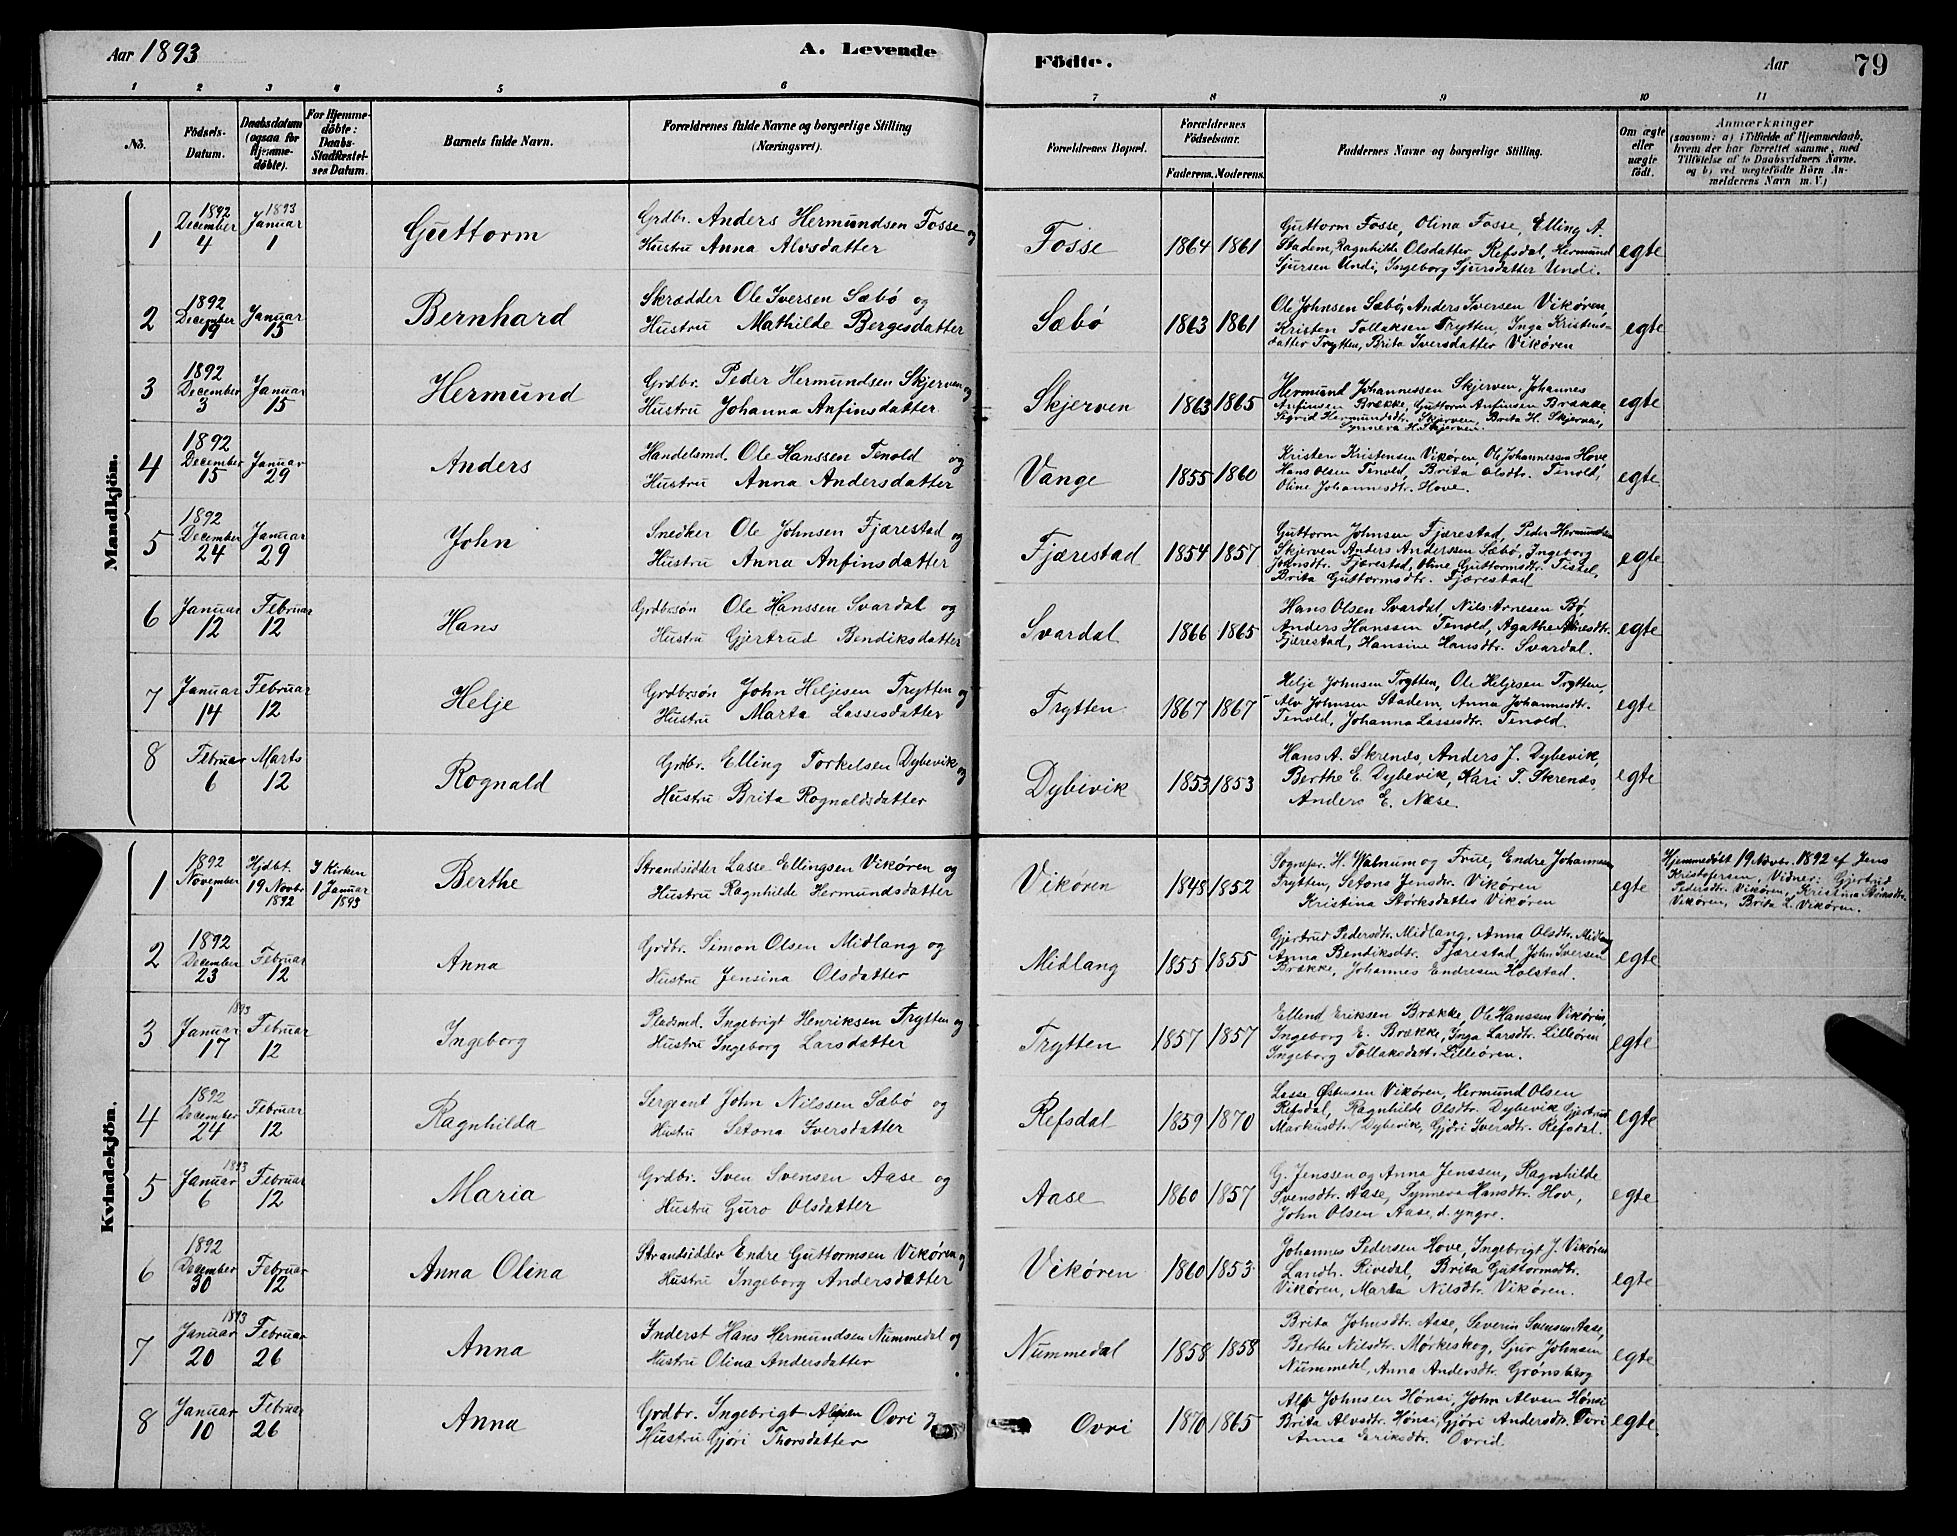 Aar 1893
A. Levende
Födte.
Aar
79
1 2 3 4 5 6 7 8 9 10 11
No.
Födsels-
Datum.
Daabsdatum
(ogsaa for
Hjemme-
döbte).
For Hjemme-
döbte:
Daabs-
Stadfæstel-
ses Datum.
Barnets fulde Navn.
Forældrenes fulde Navne og borgerlige Stilling
(Næringsvei).
Forældrenes Bopæl.
Forældrenes
Födselsaar.
Faderens. Moderens.
Faddernes Navne og borgerlige Stilling.
Om ægte
eller
uægte
födt.
Anmærkninger
(saasom: a) i Tilfælde af Hjemmedaab,
hvem der har forrettet samme, med
Tilföielse af to Daabsvidners Navne,
og b) ved uægtefödte Börn An-
melderens Navn m. V.)
Mandkjön.
1
1892
December
4
1893
Januar
1
Guttorm
Grdbr. Anders Hermundsen Fosse og
Hustru Anna Alvsdatter
Fosse
1864 1861
Guttorm Fosse, Olina Fosse, Elling A.
Stadem, Ragnhilde Olsdatter Refsdal, Hermund
Sjursen Undi, Ingeborg Sjursdatter Undi.
egte
2
1892
December
19
Januar
15
Bernhard
Skrædder Ole Iversen Sæbö og
Hustru Mathilde Bergesdatter
Sæbö
1863 1861
Ole Johnsen Sæbö, Anders Iversen Vikören,
Kristen Tollaksen Trytten, Inga Kristens-
datter Trytten, Brita Iversdatter Vikören
egte
3
1892
December
3
Januar
15
Hermund
Grdbr. Peder Hermundsen Skjerven og
Hustru Johanna Anfinsdatter
Skjerven
1863 1865
Hermund Johannessen Skjerven, Johannes
Anfinsen Brække, Guttorm Anfinsen Brække
Sigrid Hermundsdtr. Skjerven, Brita H. Skjerven,
Synneva H. Skjerven.
egte
4
1892
December
15
Januar
29
Anders
Handelsmd. Ole Hanssen Tenold og
Hustru Anna Andersdatter
Vange
1855 1860
Kristen Kristensen Vikören, Ole Johannessen Hove
Hans Olsen Tenold, Brita Olsdtr. Tenold,
Oline Johannesdtr. Hove.
egte
5
1892
December
24
Januar
29
John
Snedker Ole Johnsen Fjærestad og
Hustru Anna Anfinsdatter
Fjærestad
1854 1857
Guttorm Johnsen Fjærestad, Peder Hermundsen
Skjerven Anders Anderssen Sæbö, Ingeborg
Johnsdtr. Fjærestad, Oline Guttormsdtr. Tistel,
Brita Guttormsdtr. Fjærestad
egte
6
Januar
12
Februar
12
Hans
Grdbrsön Ole Hanssen Svardal og
Hustru Gjertrud Bendiksdatter
Svardal
1866 1865
Hans Olsen Svardal, Nils Arnesen Bö
Anders Hanssen Tenold, Agathe Arnesdtr.
Fjærestad, Hansine Hansdtr. Svardal.
egte
7
Januar
14
Februar
12
Helje
Grdbrsön John Heljesen Trytten og
Hustru Marta Lassesdatter
Trytten
1867 1867
Helje Johnsen Trytten, Ole Heljesen Trytten,
Alv Johnsen Stadem, Anna Johannesdtr.
Tenold, Johanna Lassesdtr. Tenold
egte
8
Februar
6
Marts
12
Rognald
Grdbr. Elling Torkelsen Dybevik og
Hustru Brita Rognaldsdatter
Dybevik
1853 1853
Hans A. Skrends, Anders J. Dybevik,
Berthe E. Dybevik, Kari T. Skrends,
Anders E. Næse
egte
Kvindekjön.
1
1892
November
7
Hjdbt.
19 Novbr
1892
I Kirken
1 Januar
1893
Berthe
Strandsidder Lasse Ellingsen Vikören og
Hustru Ragnhilde Hermundsdatter
Vikören
1848 1852
Sognepr. H. Walnum og Frue, Endre Johannesen
Trytten, Setona Jensdtr. Vikören
Kristina Størksdatter Vikören
egte
Hjemmedöbt 19 Novbr. 1892 af Jens
Kristofersen, Vidner: Gjertrud
Pedersdtr. Vikören, Kristina Størksdtr.
Vikören, Brita L. Vikören.
2
1892
December
23
Februar
12
Anna
Grdbr. Simon Olsen Midlang og
Hustru Jensina Olsdatter
Midlang
1855 1855
Gjertrud Pedersdtr. Midlang, Anna Olsdtr. Midlang
Anna Bendiksdtr. Fjærestad, John Iversen
Brække, Johannes Endresen Holstad.
egte
3
1893
Januar
17
Februar
12
Ingeborg
Pladsmd. Ingebrigt Henriksen Trytten og
Hustru Ingeborg Larsdatter
Trytten
1857 1857
Ellend Eriksen Brække, Ole Hanssen Vikören,
Ingeborg E. Brække, Inga Larsdtr. Lilleören
Ingeborg Tollaksdatter Lilleören.
egte
4
1892
December
24
Februar
12
Ragnhilda
Sergeant John Nilssen Sæbö og
Hustru Setona Iversdatter
Refsdal
1859 1870
Lasse Østensen Vikören, Hermund Olsen
Refsdal, Ragnhilde Olsdtr. Dybevik, Gjertrud
Markusdtr. Dybevik, Gjöri Iversdtr. Refsdal.
egte
5
1893
Januar
6
Februar
12
Maria
Grdbr. Sven Svensen Aase og
Hustru Guro Olsdatter
Aase
1860 1857
G. Jenssen og Anna Jenssen, Ragnhilde
Svensdtr. Aase, Synneva Hansdtr. Hov,
John Olsen Aase, d. yngre.
egte
6
1892
December
30
Februar
12
Anna Olina
Strandsidder Endre Guttormsen Vikören og
Hustru Ingeborg Andersdatter
Vikören
1860 1853
Johannes Pedersen Hove, Ingebrigt J. Vikören
Landtr. Rivedal, Brita Guttormsdtr.
Vikören, Marta Nilsdtr. Vikören.
egte
7
1893
Januar
20
Februar
26
Anna
Inderst Hans Hermundsen Nummedal og
Hustru Olina Andersdatter
Nummedal
1858 1858
Brita Johnsdtr. Aase, Severin Svensen Aase,
Berthe Nilsdtr. Mörkeskog, Sjur Johnsen
Nummedal, Anna Andersdtr. Grönsberg
egte
8
Januar
10
Februar
26
Anna
Grdbr. Ingebrigt Ovri og
Hustru Gjöri Thorsdatter
Ovri
1870 1865
Alv Johnsen Hönsi, John Alvsen Hönsi
Brita Alvsdtr. Hönsi, Gjöri Andersdtr. Ovri
Anna Eriksdtr. Ovrid.
egte.